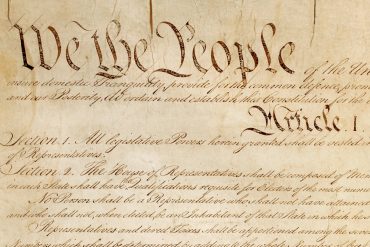 We the People of the Un
insure domestic Tranquility, provide for the common defence, prom
and our Posterity, do ordain and establish this Constitution for the U
Article. I.
Section. 1. All legislative Powers herein granted shall be vested in
of Representatives.
Section. 2. The House of Representatives shall be composed of Mem
in each State shall have Qualifications requisite for Electors of the most nume
No Person shall be a Representative who shall not have attained
and who shall not, when elected, be an Inhabitant of that State in which he s
Representatives and direct Taxes shall be apportioned among the seve